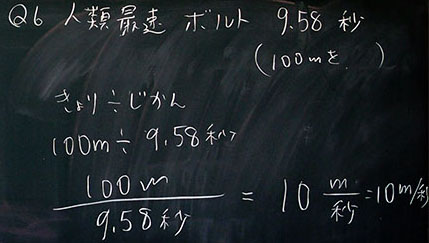 Q6 人類最速 ボルト 9.58 秒
(100mを )
きょり÷じかん
100m÷ 9.58秒
100m
9.58秒
= 10 m/秒 =10m/秒